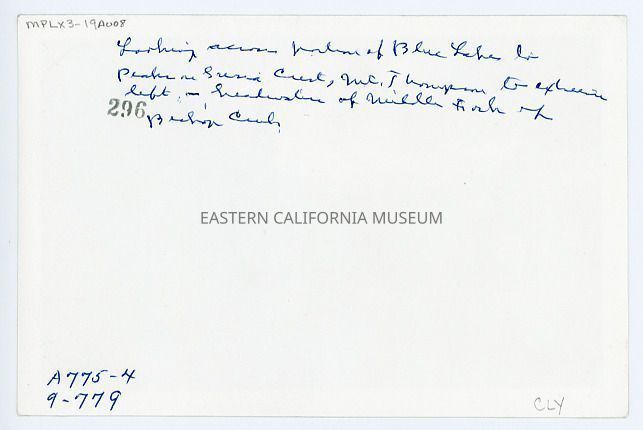 MPLX3-19AU08
Looking across portion of Blue Lakes to
Peaks on Sierra Crest, Mt. Thompson to extreme
left, - headwaters of Middle Fork of
296
Bishop Creek
EASTERN CALIFORNIA MUSEUM
A775-4
9-779
CLY